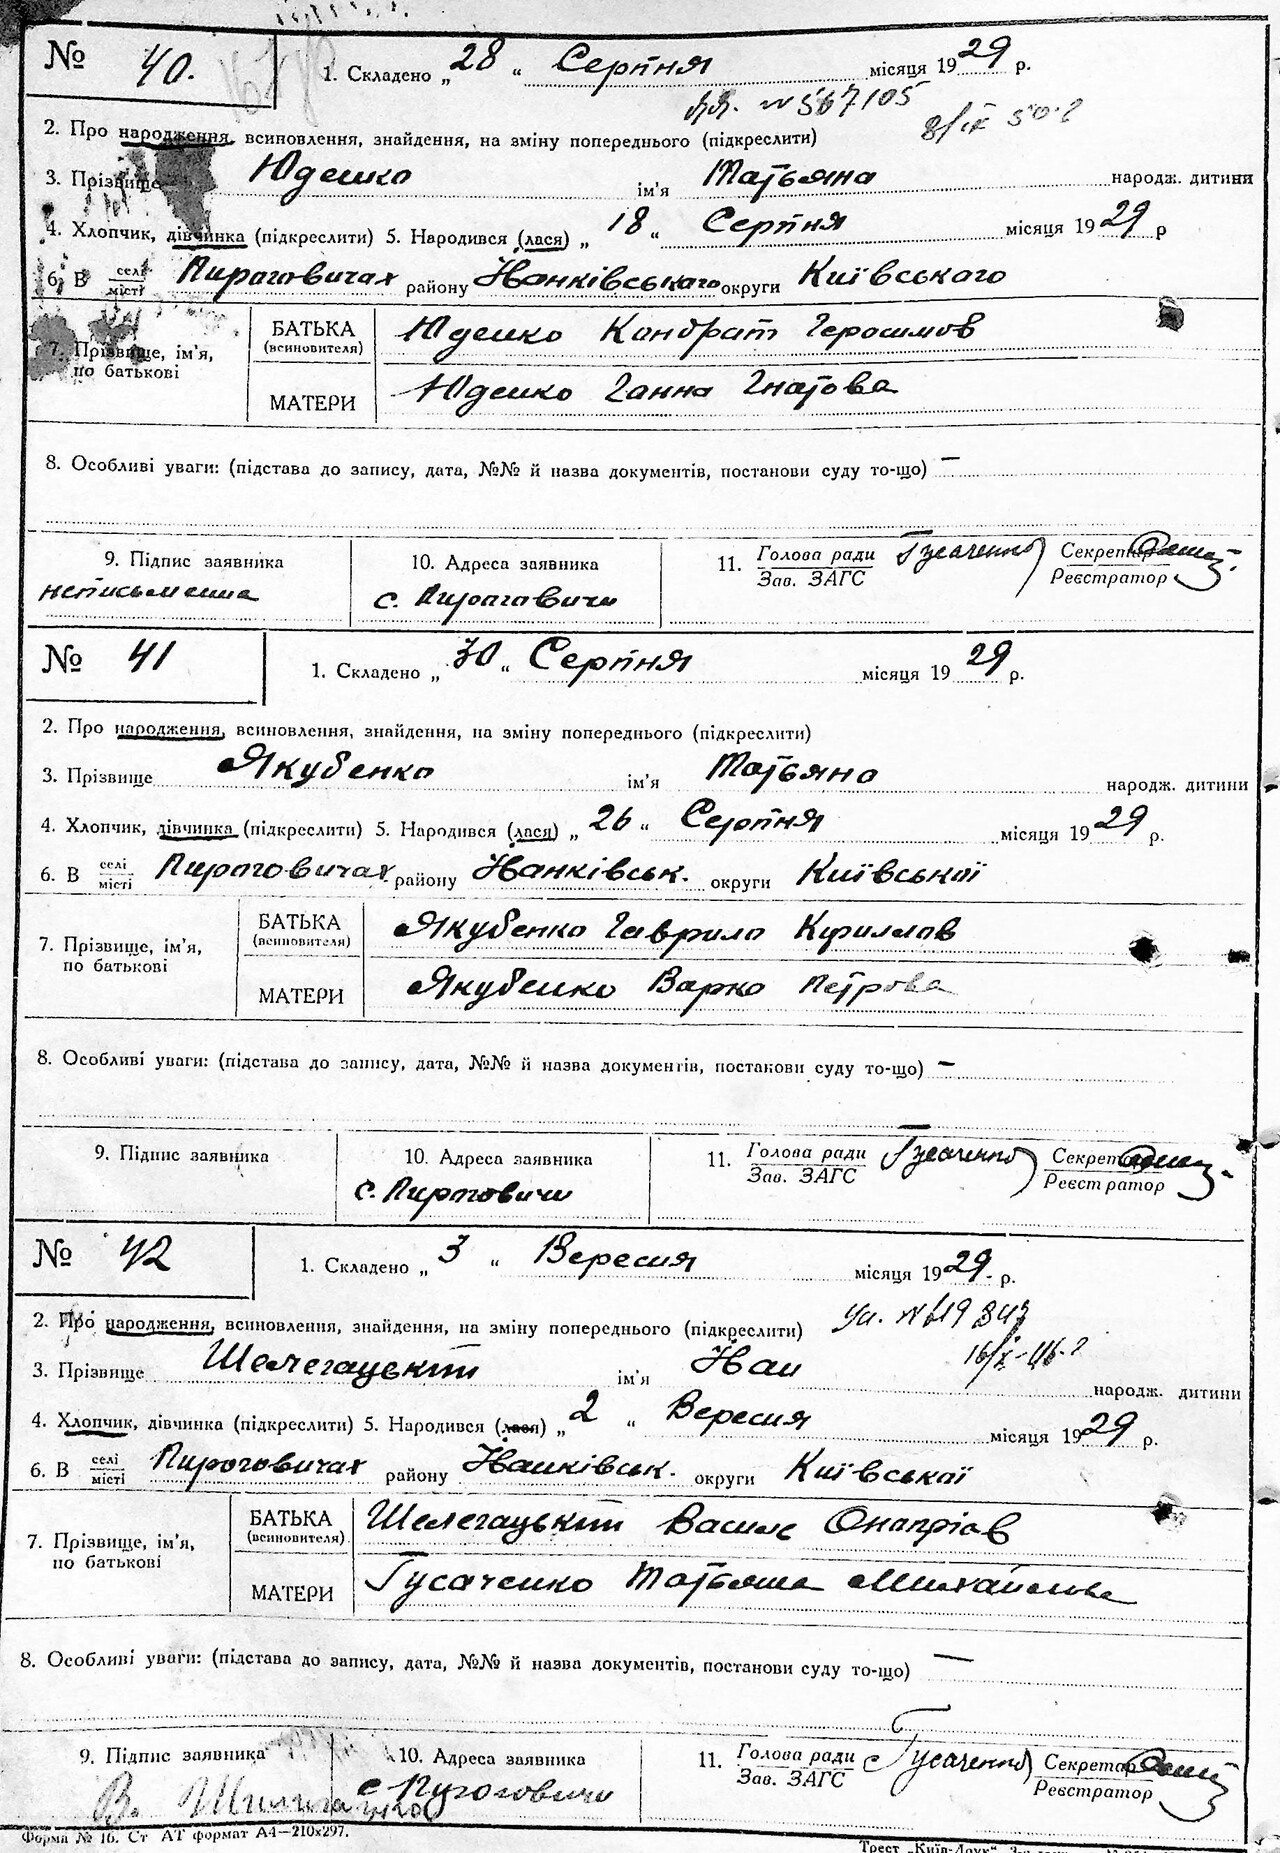 № 40. 1. Складено „28“ Серпня місяця 1929 р.
№ 567105
8/ІХ 50 г
2. Про народження, всиновлення, знайдення, на зміну попереднього (підкреслити)
3. Прізвище Юденко ім'я Татьяна народж. дитини
4. Хлопчик, дівчинка (підкреслити) 5. Народився (лася) „18“ Серпня місяця 1929 р
6. В селі місті Пироговичах району Іванківського округи Київського
7. Прізвище, ім'я, по батькові
БАТЬКА (всиновителя) Юденко Кандрат Герасимов
МАТЕРИ Юденко Ганна Гнатова
8. Особливі уваги: (підстава до запису, дата, №№ й назва документів, постанови суду то-що) —
9. Підпис заявника 10. Адреса заявника 11. Голова ради Гусаченко Секретар
Зав. ЗАГС Реєстратор
неписьменна с. Пироговичи
№ 41 1. Складено „30“ Серпня місяця 1929 р.
2. Про народження, всиновлення, знайдення, на зміну попереднього (підкреслити)
3. Прізвище Якубенко ім'я Татьяна народж. дитини
4. Хлопчик, дівчинка (підкреслити) 5. Народився (лася) „26“ Серпня місяця 1929 р.
6. В селі місті Пироговичах району Іванківськ. округи Київської
7. Прізвище, ім'я, по батькові
БАТЬКА (всиновителя) Якубенко Гаврило Кирилов
МАТЕРИ Якубенко Варка Петрова
8. Особливі уваги: (підстава до запису, дата, №№ й назва документів, постанови суду то-що) —
9. Підпис заявника 10. Адреса заявника 11. Голова ради Гусаченко Секретар
Зав. ЗАГС Реєстратор
с. Пироговичи
№ 42 1. Складено „3“ Вересня місяця 1929 р.
2. Про народження, всиновлення, знайдення, на зміну попереднього (підкреслити)
3. Прізвище Шелегацький ім'я Іван народж. дитини
4. Хлопчик, дівчинка (підкреслити) 5. Народився (лася) „2“ Вересня місяця 1929 р.
6. В селі місті Пироговичах району Іванківськ. округи Київської
7. Прізвище, ім'я, по батькові
БАТЬКА (всиновителя) Шелегацький Василь Онапріов
МАТЕРИ Гусаченко Татьяна Михайлова
8. Особливі уваги: (підстава до запису, дата, №№ й назва документів, постанови суду то-що) —
9. Підпис заявника 10. Адреса заявника 11. Голова ради Гусаченко Секретар
Зав. ЗАГС Реєстратор
с Пироговичи
Форма № 16. Ст АТ формат А4—210х297.
Трест „Київ-Друк“